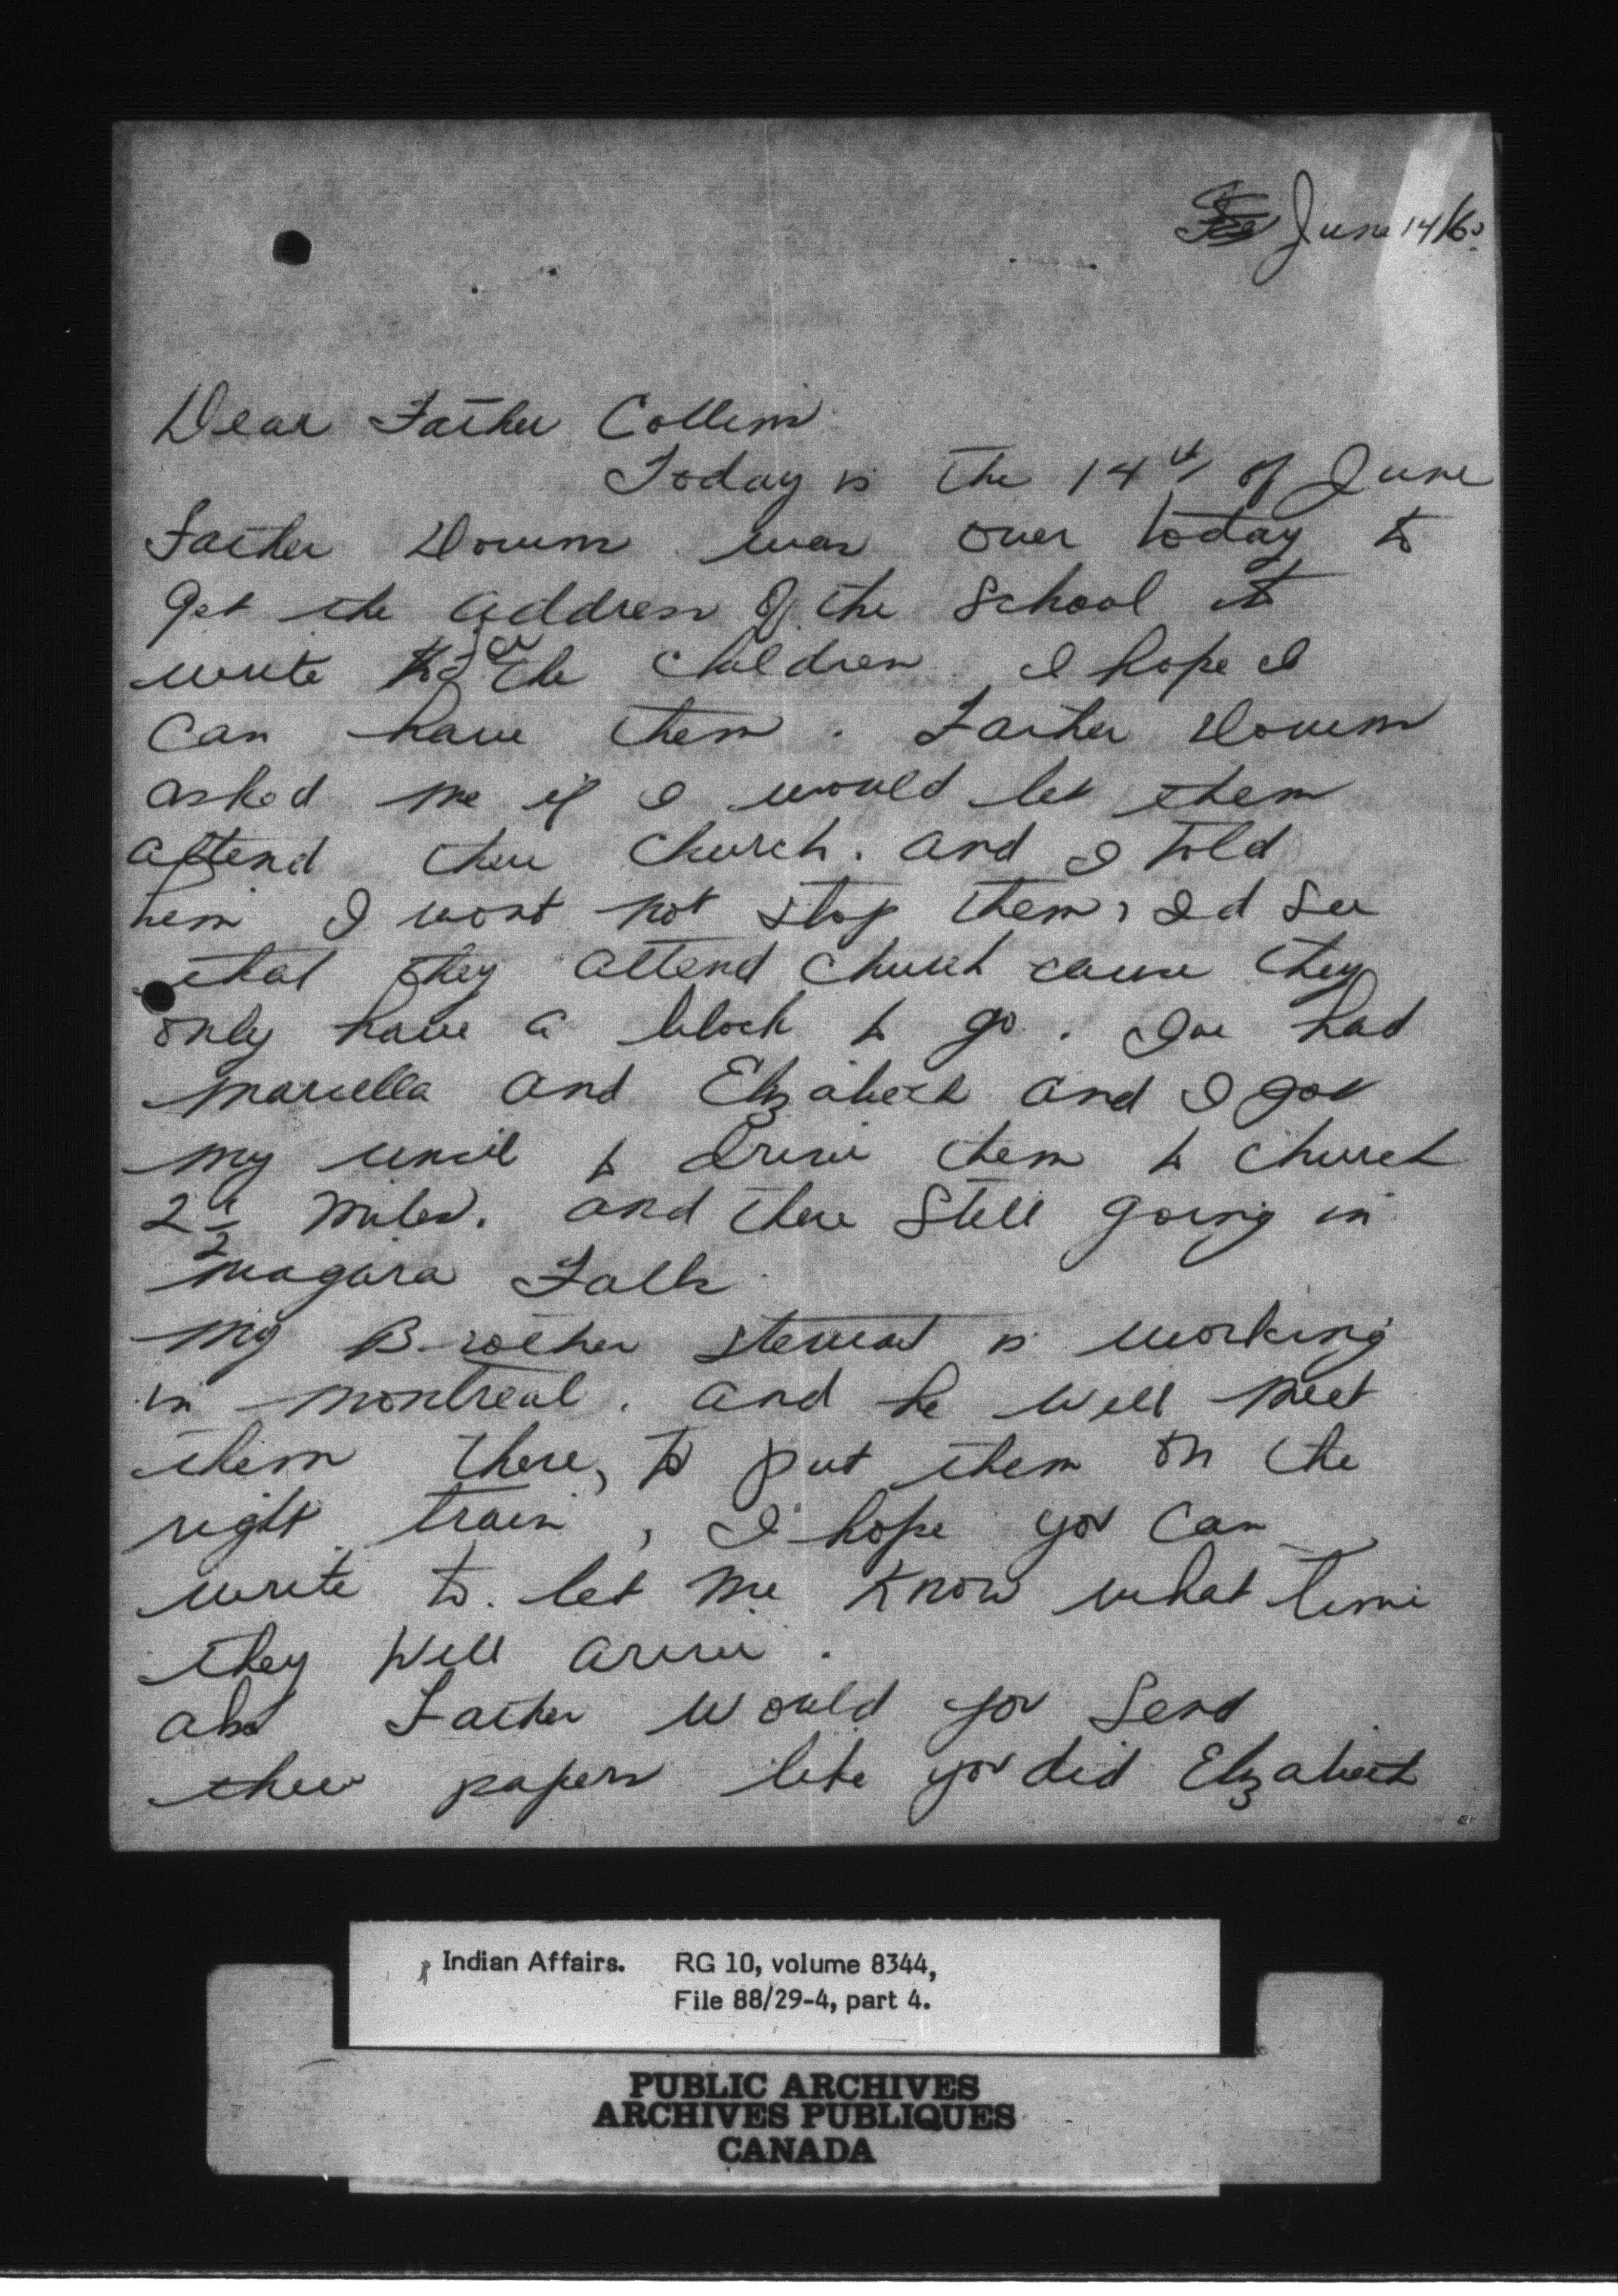 June 14/60
Dear Father Collins
Today is the 14th of June
Father was over today to
get the address of the school to
write for the children I hope I
can have them. Father
asked me if I would let them
attend there church. and I told
him I wont not stop them, I'd see
that they attend church cause they
only have a block to go. Ive had
Marcella and Elizabeth and I got
my uncil to drive them to church
2 1/2 miles. and there still going in
Niagara Falls
my Brother Stewart is working
in Montreal. and he will meet
them there, to put them on the
right train, I hope you can
write to let me know what time
they will arive.
also Father would you send
there papers like you did Elizabeth
Indian Affairs. RG 10, volume 8344,
File 88/29-4, part 4.
PUBLIC ARCHIVES
ARCHIVES PUBLIQUES
CANADA